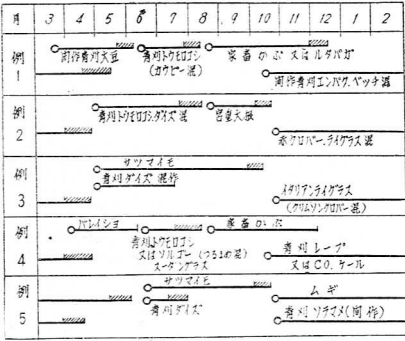 月 3 4 5 6 7 8 9 10 11 12 1 2
例 1
間作青刈大豆
青刈トウモロコシ
(カウピー混)
家畜かぶ又はルタバガ
間作青刈エンバク.ベッチ混
例 2
青刈トウモロコシ.ダイズ混
宮重大根
赤クローバー.ライグラス混
例 3
サツマイモ
青刈ダイズ混作
イタリアンライグラス
(クリムソンクローバー混)
例 4
バレイショ
青刈トウモロコシ
又はソルゴー (つるまめ混)
スーダングラス
家畜かぶ
青刈レープ
又はCO.ケール
例 5
サツマイモ
青刈ダイズ
ムギ
青刈ソラマメ(間作)